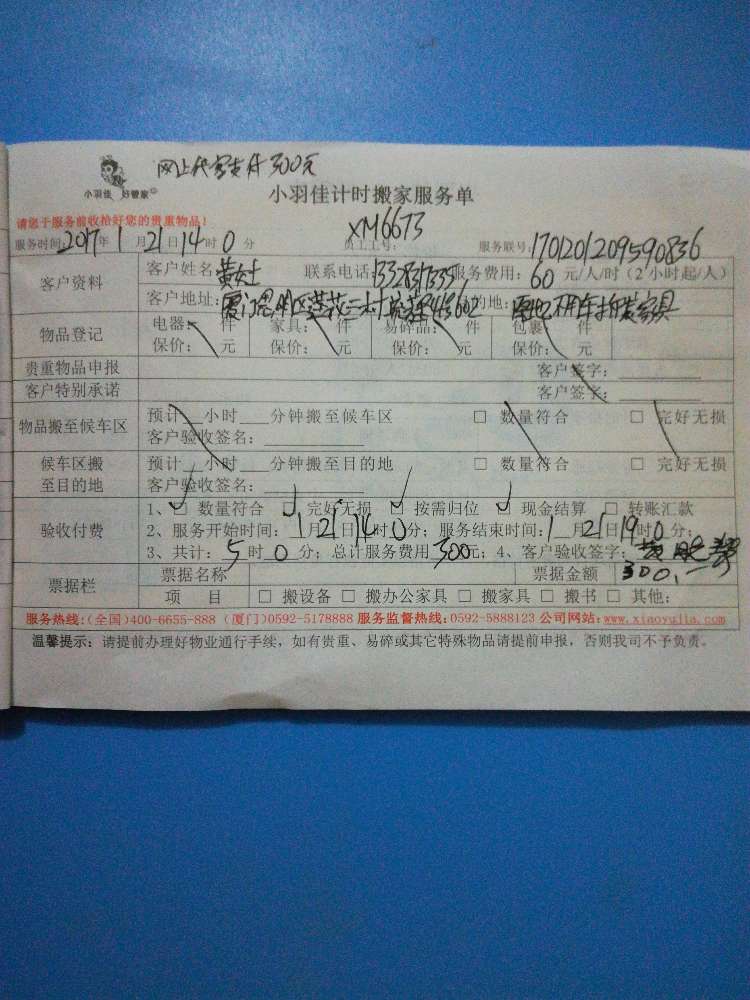 网上代客支付300元
小羽佳 好管家
小羽佳计时搬家服务单
请您于服务前收拾好您的贵重物品!
XM6673
服务时间:2017年1月21日14时0分 员工工号: 服务联号:1701201209590836
客户资料 客户姓名:黄女士 联系电话: 服务费用:60元/人/时(2小时起/人)
客户地址:厦门思明区莲花三村 的地:
物品登记 电器: 件 家具: 件 易碎品: 件 包裹: 件
保价: 元 保价: 元 保价: 元 保价: 元
贵重物品申报 客户签字:
客户特别承诺 客户签字:
物品搬至候车区 预计 小时 分钟搬至候车区 □ 数量符合 □ 完好无损
客户验收签名:
候车区搬至目的地 预计 小时 分钟搬至目的地 □ 数量符合 □ 完好无损
客户验收签名:
验收付费 1、□ 数量符合 □ 完好无损 □ 按需归位 □ 现金结算 □ 转账汇款
2、服务开始时间:1月21日14时0分;服务结束时间:1月21日19时0分;
3、共计:5时0分;总计服务费用300元;4、客户验收签字:
票据栏 票据名称 票据金额 300.
项 目 □ 搬设备 □ 搬办公家具 □ 搬家具 □ 搬书 □ 其他:
服务热线:(全国)400-6655-888 (厦门)0592-5178888 服务监督热线:0592-5888123 公司网站:www.xiaoyujia.com
温馨提示:请提前办理好物业通行手续,如有贵重、易碎或其它特殊物品请提前申报,否则我司不予负责。